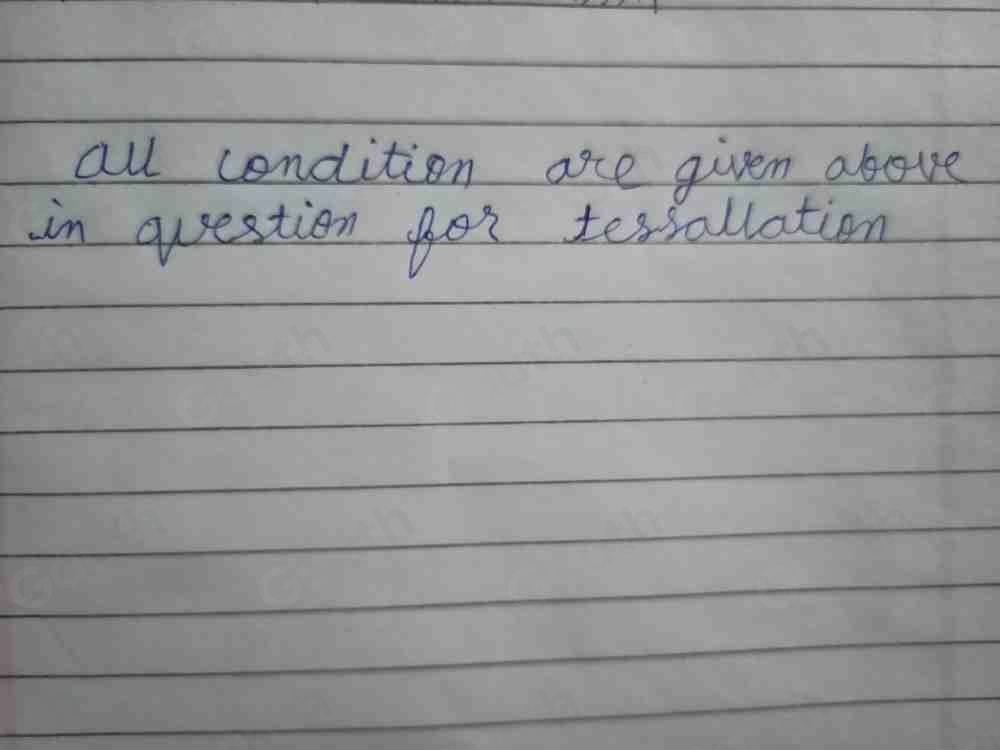 All condition are given above
in question for tessallation